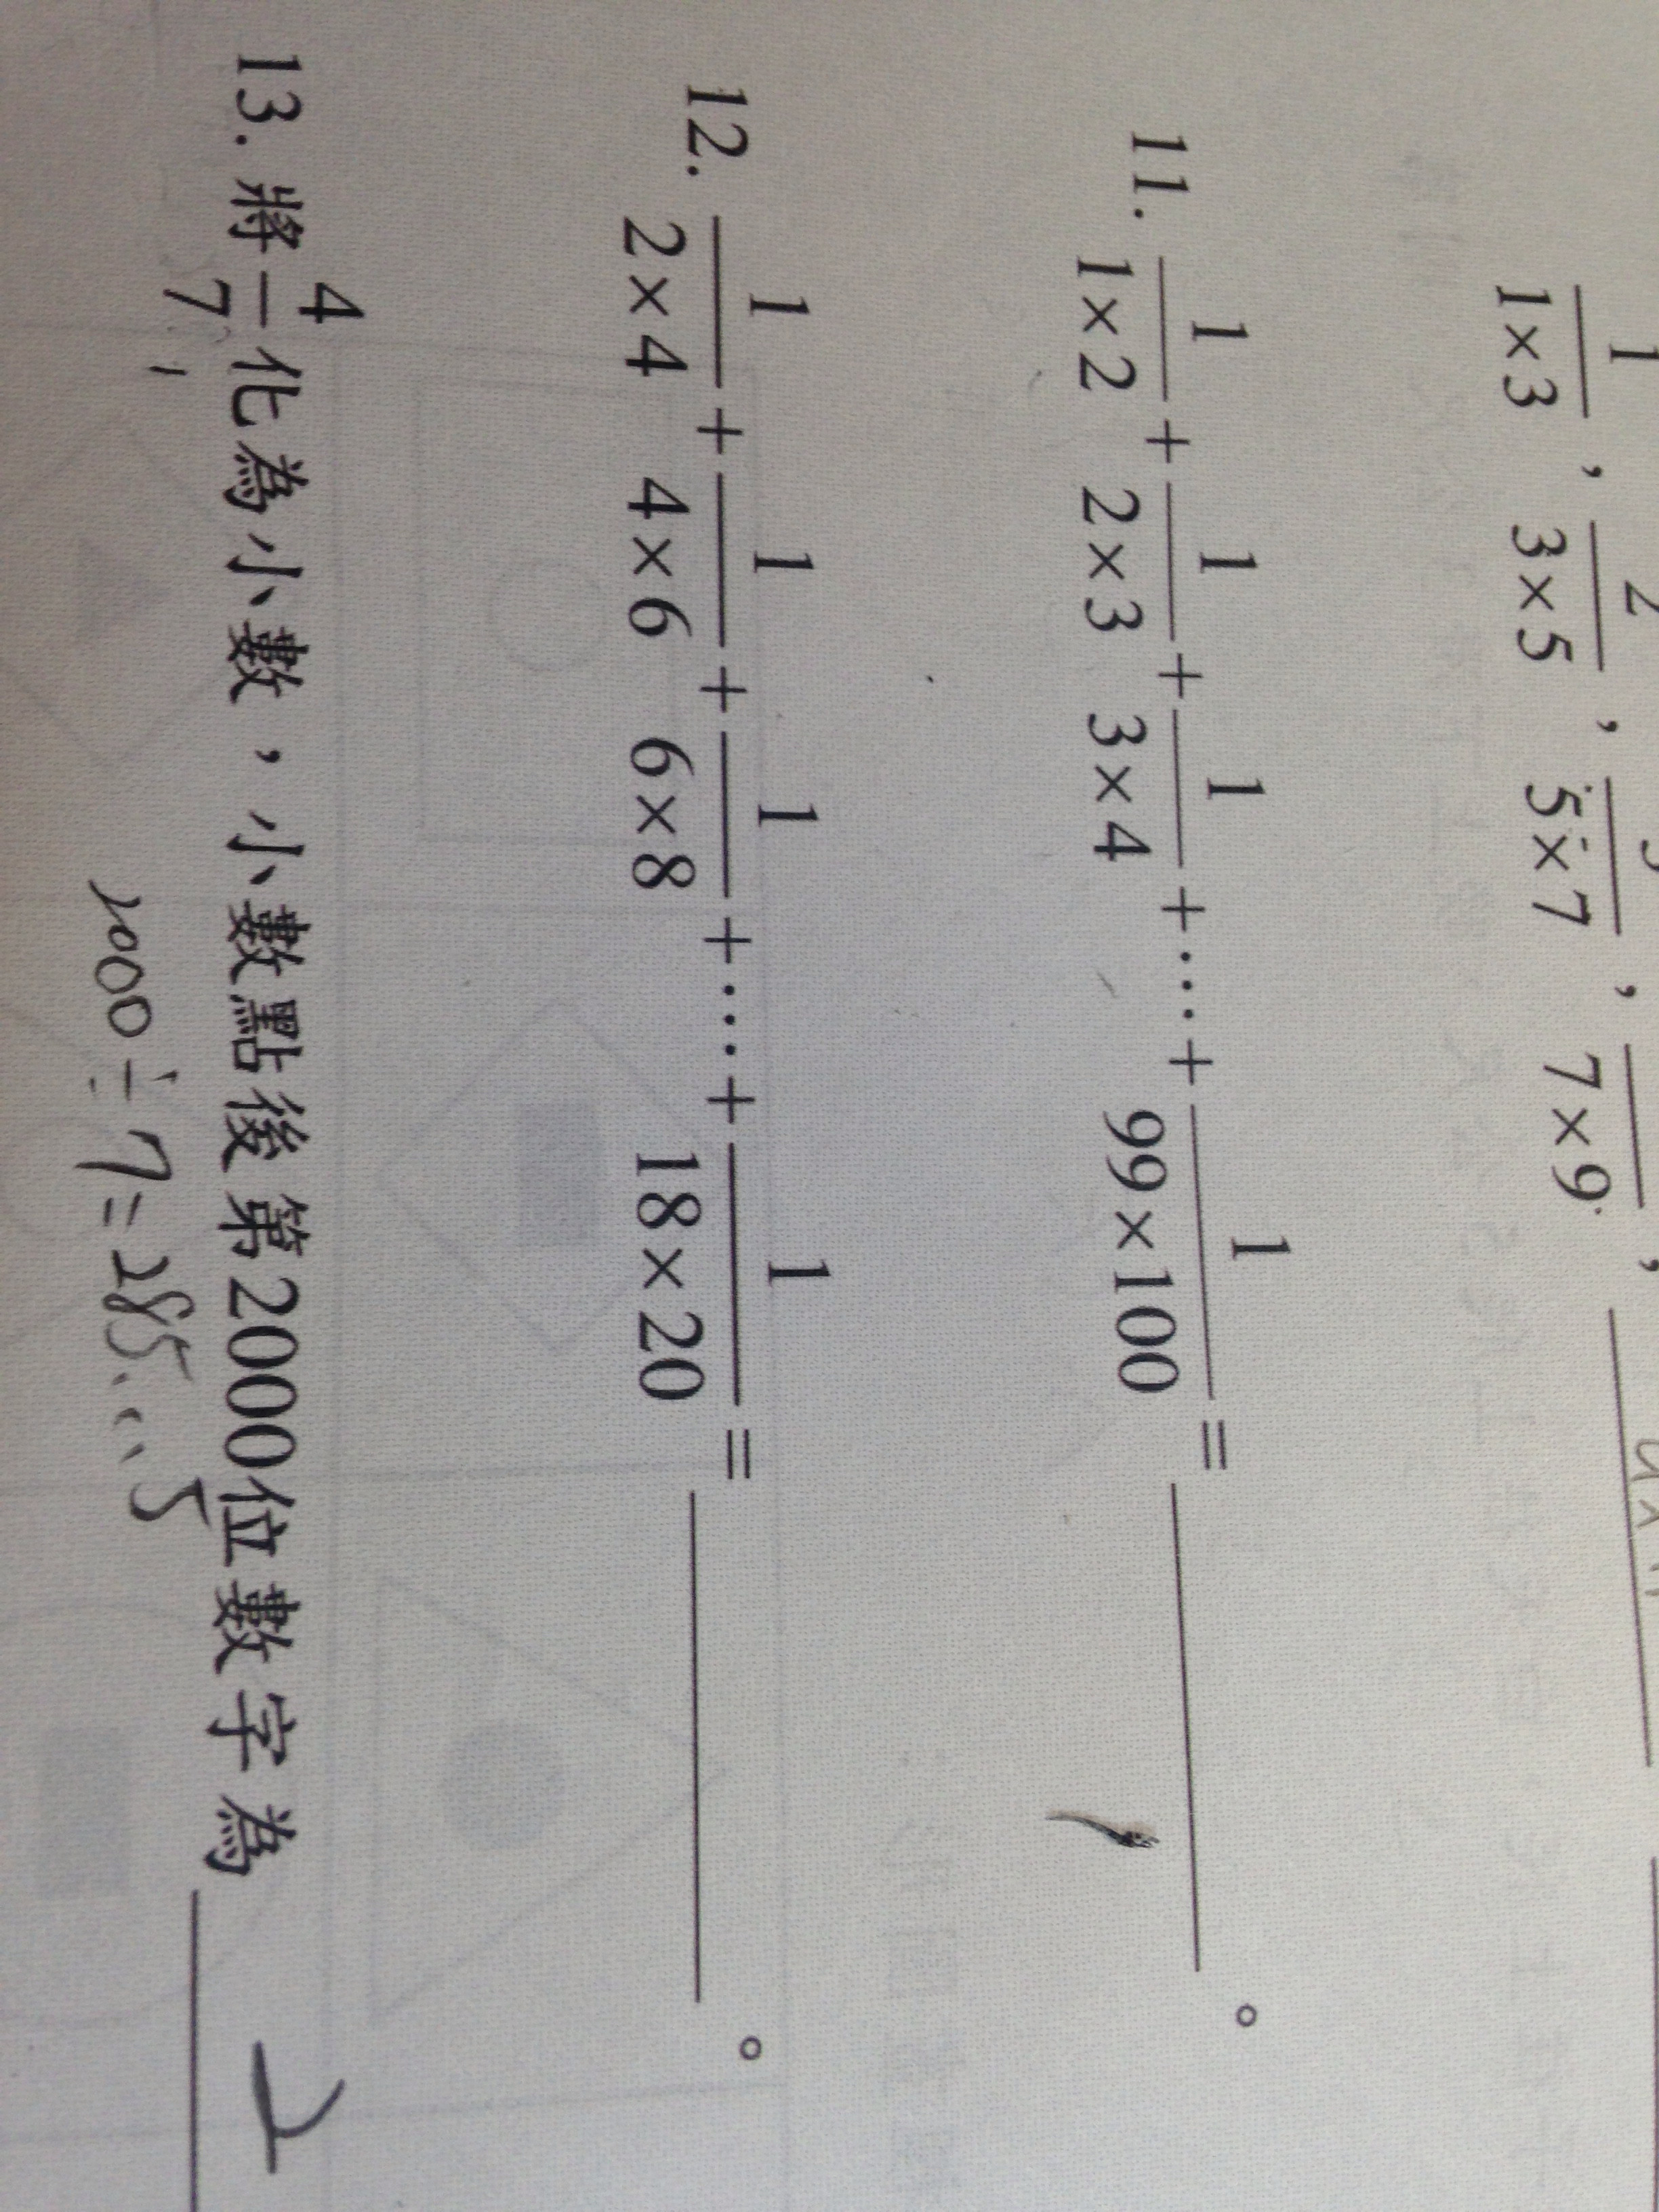 1/(1×3) , 2/(3×5) , /(5×7) , /(7×9) ,
11. 1/(1×2) + 1/(2×3) + 1/(3×4) + ⋯ + 1/(99×100) = ______ 。
12. 1/(2×4) + 1/(4×6) + 1/(6×8) + ⋯ + 1/(18×20) = ______ 。
13. 將4/7化為小數，小數點後第2000位數字為 ______
2000÷7=285...5